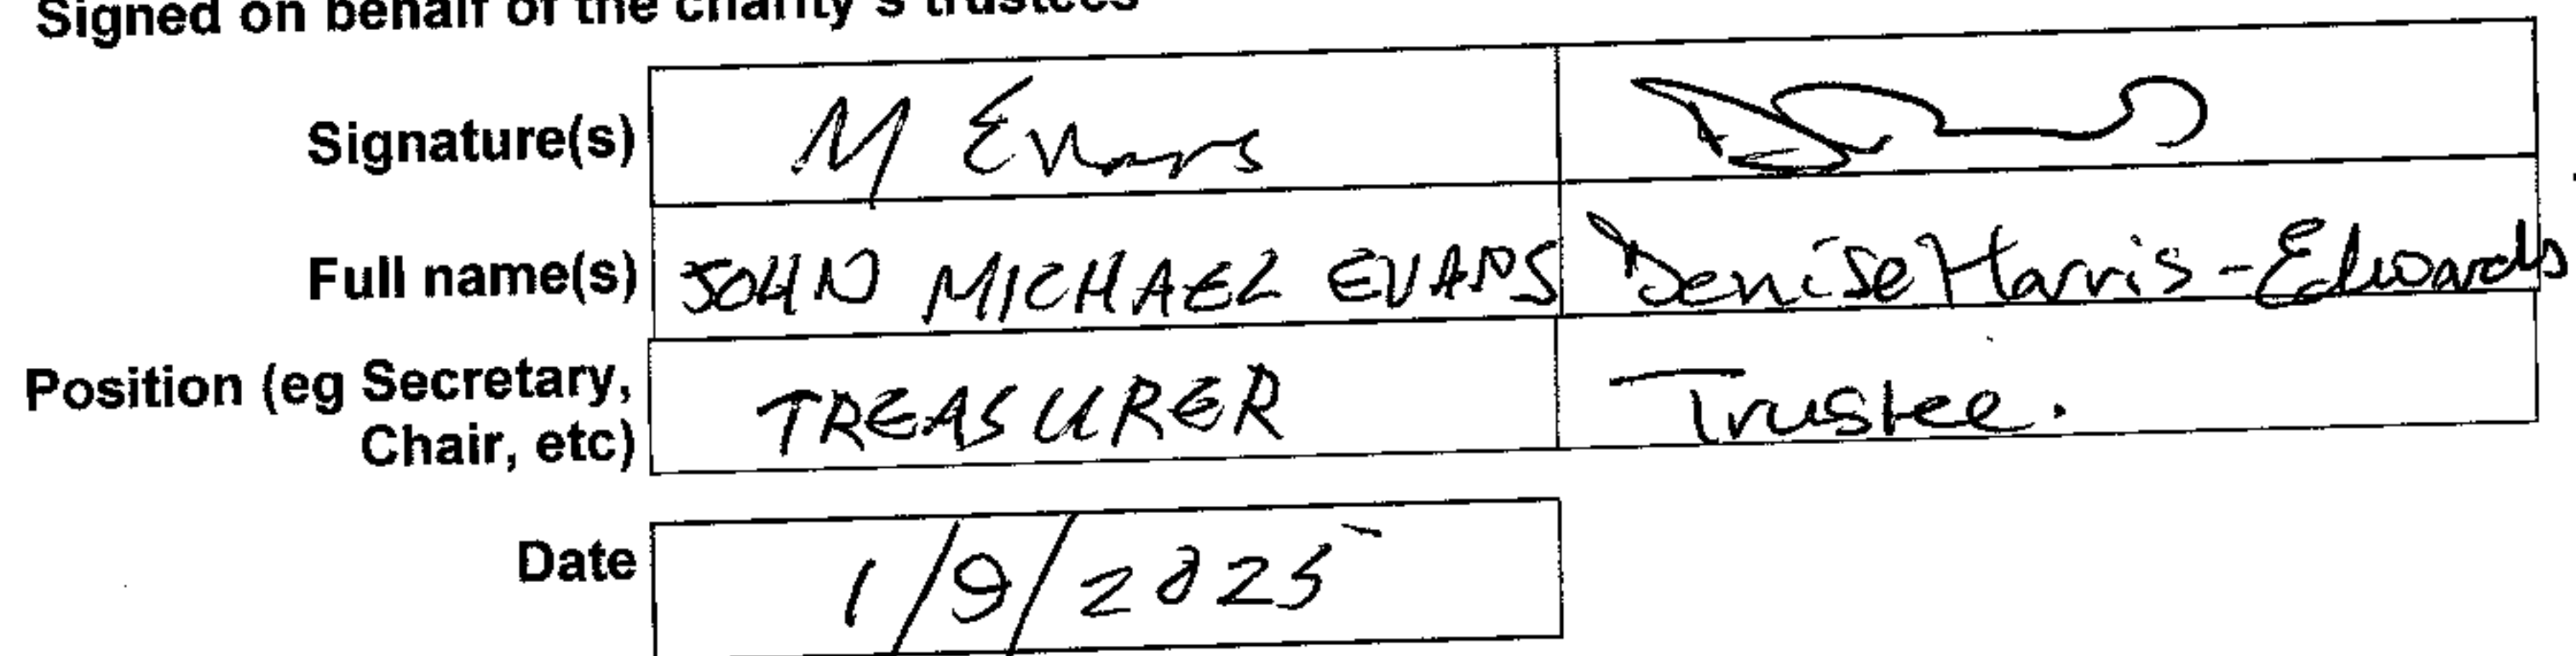 Signed on behalf of the charity's trustees
Signature(s) M Evans
Full name(s) JOHN MICHAEL EVANS Denise Harris-Edwards
Position (eg Secretary, Chair, etc) TREASURER Trustee.
Date 1/9/2025